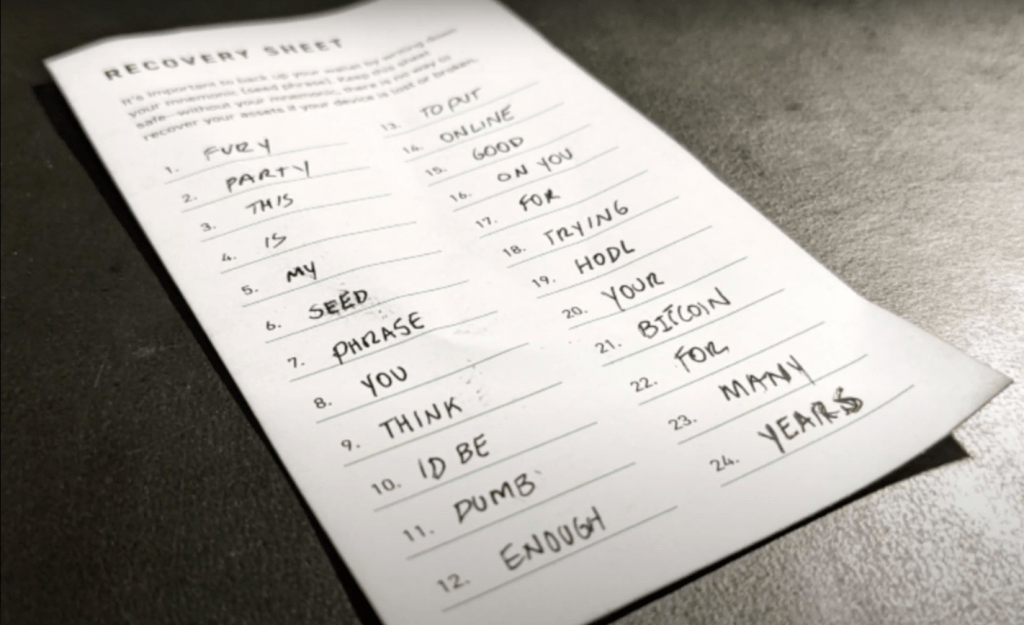 RECOVERY SHEET
It's important to back up your wallet by writing down
your mnemonic (seed phrase). Keep this sheet
safe—without your mnemonic, there is no way to
recover your assets if your device is lost or broken.
1. FURY
2. PARTY
3. THIS
4. IS
5. MY
6. SEED
7. PHRASE
8. YOU
9. THINK
10. ID BE
11. DUMB
12. ENOUGH
13. TO PUT
14. ONLINE
15. GOOD
16. ON YOU
17. FOR
18. TRYING
19. HODL
20. YOUR
21. BITCOIN
22. FOR
23. MANY
24. YEARS